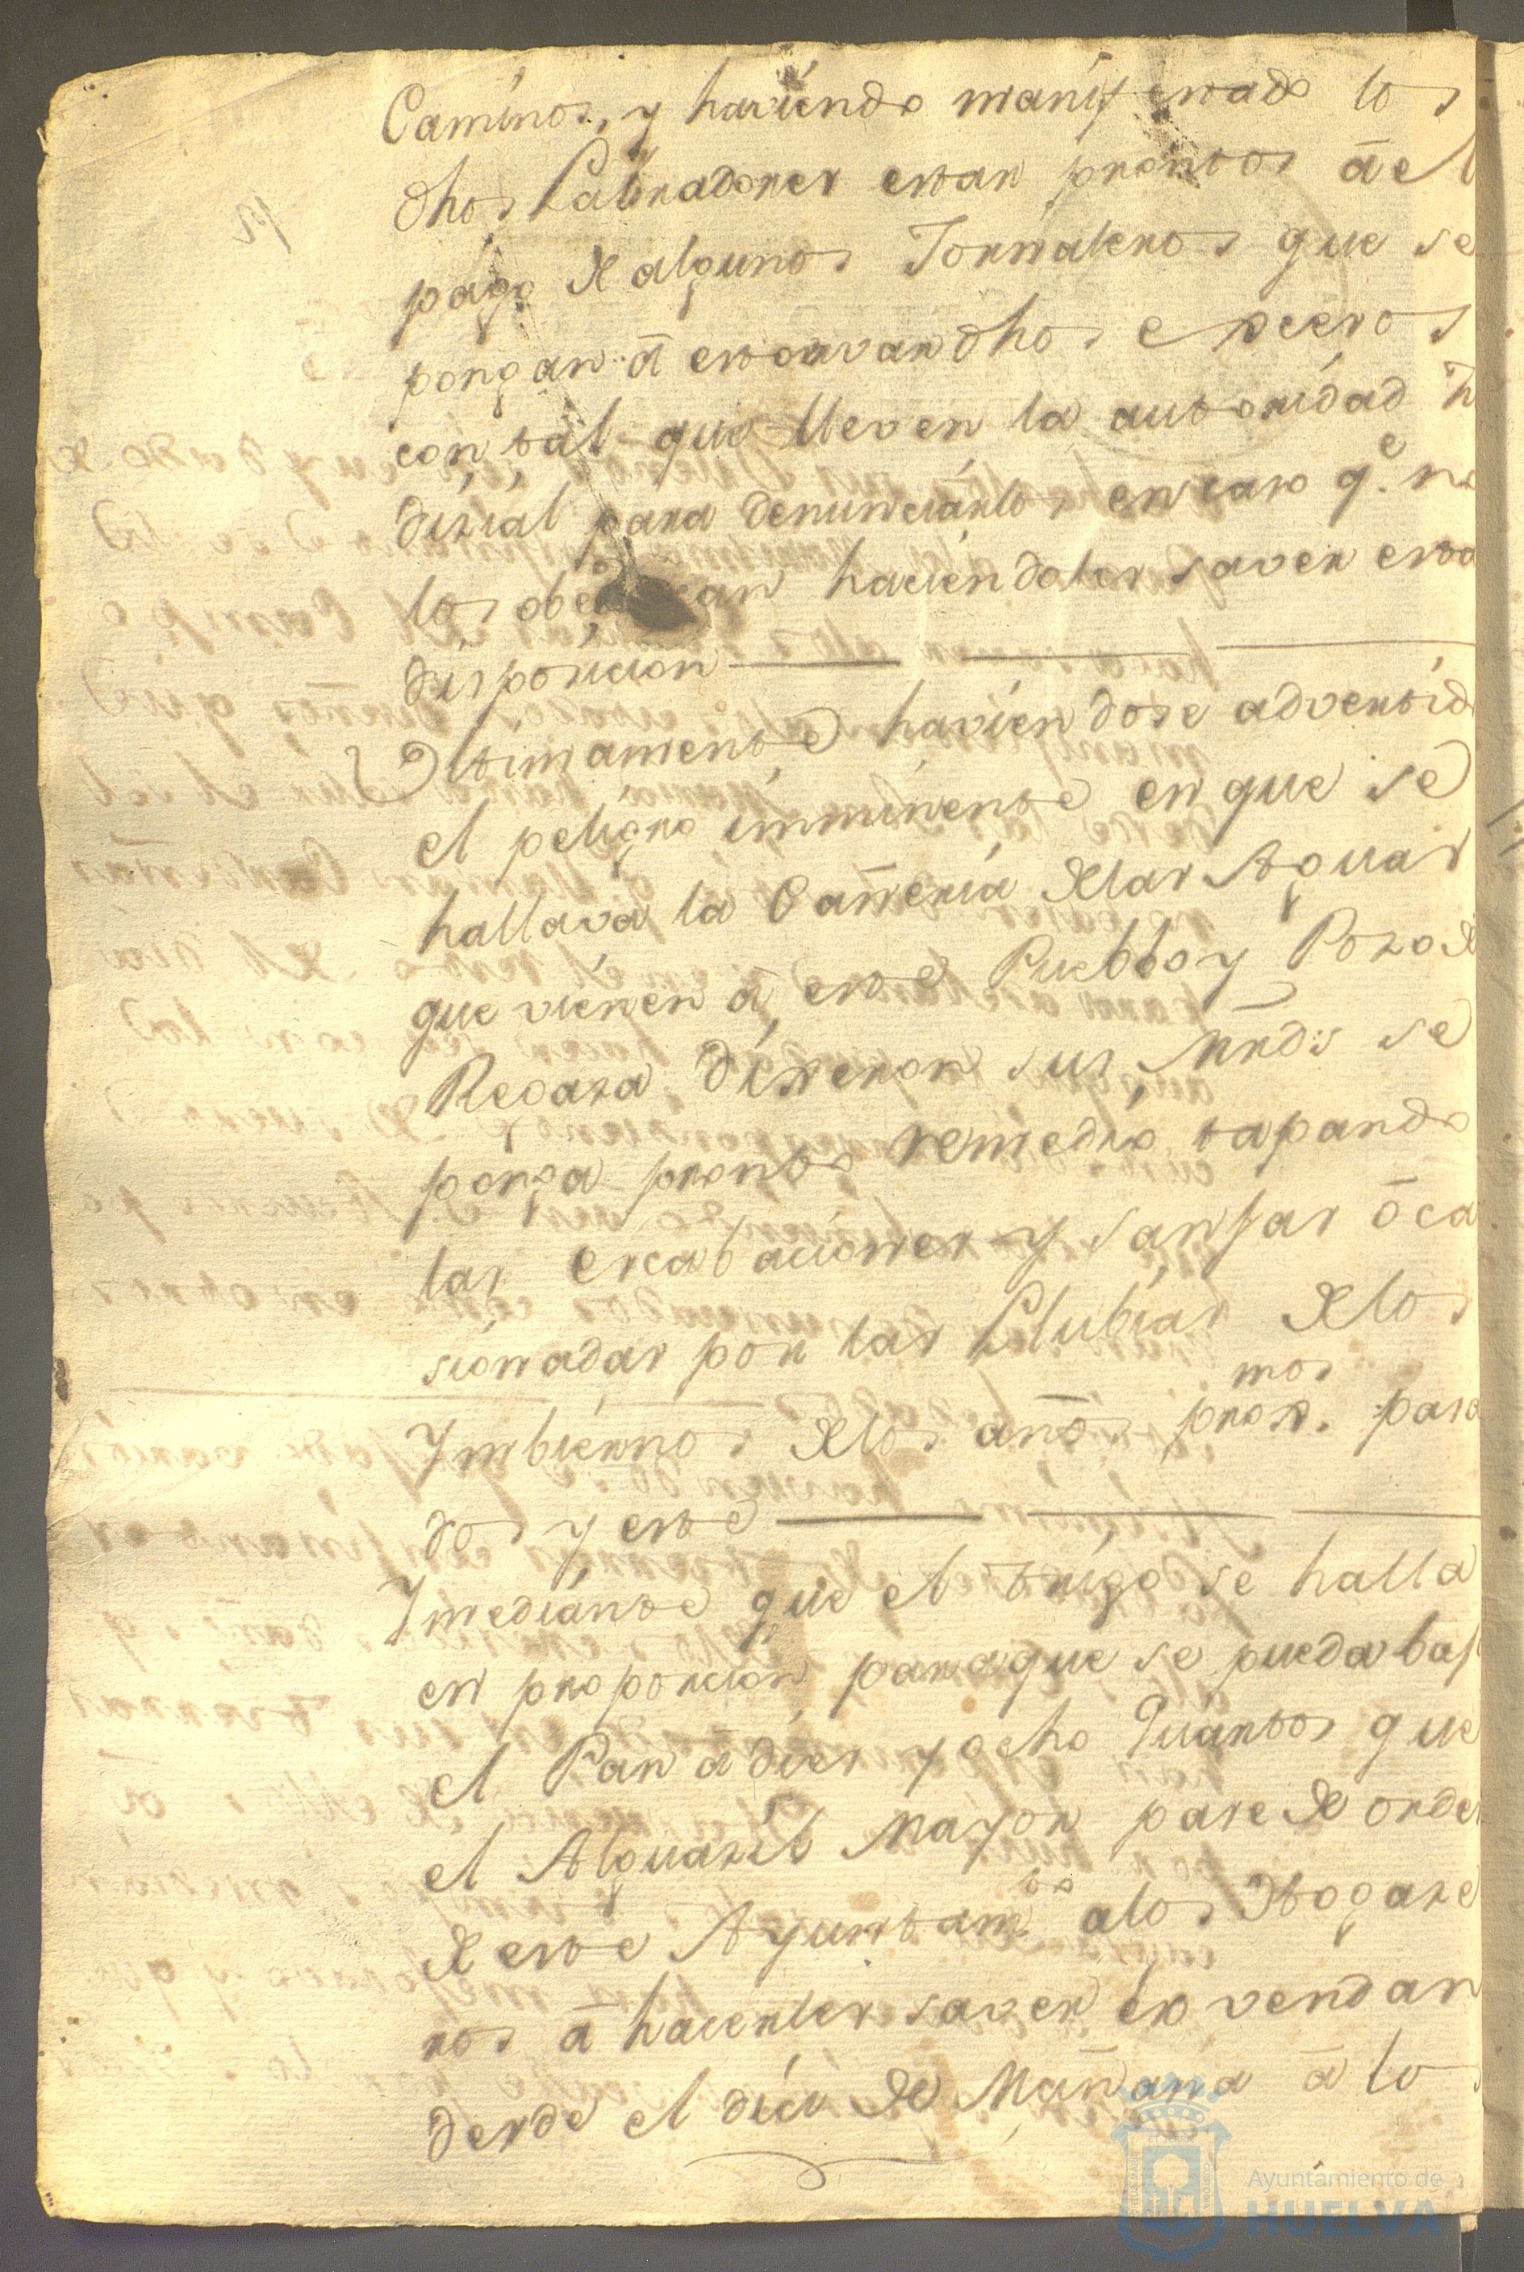 Caminos, y haviendo manifestado los
dhos Labradores estar prontos â el
pago de algunos Jornaleros que se
pongan â estorvar dhos excesos
con tal que lleven la autoridad Ju
dizial para denunciarlos en caso q.e no
los obedezcan haciendoles saver esta
disposicion
Ultimamente haviendose advertido
el peligro imminente en que se
hallava la Cañeria de las Aguas
que vienen â este Pueblo y Pozo de
Regaza dixeron sus Mrds se
ponga pronto remedio tapando
las escabaciones y sanjas ôca
sionadas por las Llubias de los
Imbiernos de los años prox.mos pasa
dos y este
Imediante que el trigo se halla
en proporcion para que se pueda baj
el Pan a diez y ocho Quartos que
el Alguazil Mayor pase de orden
de este Ayuntam.to a los Atogaze
ros â hacerles saver lo vendan
desde el dia de Mañana â lo
Ayuntamiento de
HUELVA